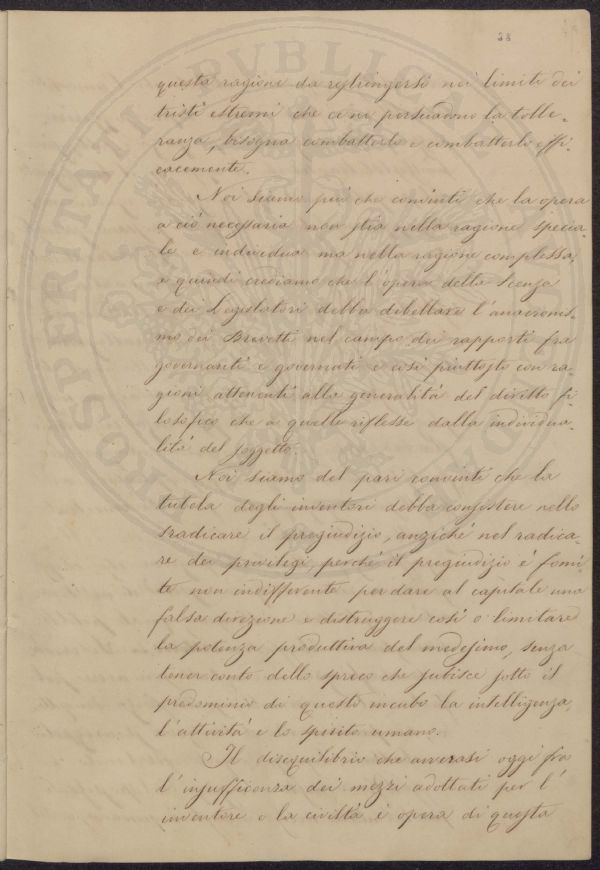 28
questa ragione da restringersi nei limiti dei
tristi estremi che ce ne persuadono la tolle-
ranza, bisogna combatterlo e combatterlo effi-
cacemente.
Noi siamo più che convinti che la opera
a ciò necessaria non stia nella ragione specia-
le e individua ma nella ragione complessa,
e quindi crediamo che l'opera della scienza
e dei Legislatori debba debellare l'anacronis-
mo dei Brevetti nel campo dei rapporti fra
governanti e governati e così piuttosto con ra-
gioni attenenti alla generalità del diritto fi
losofico che a quelle riflesse dalla individua-
lità del soggetto.
Noi siamo del pari convinti che la
tutela degli inventori debba consistere nello
sradicare il pregiudizio, anziché nel radica-
re dei privilegi, perché il pregiudizio è fomi-
te non indifferente per dare al capitale una
falsa direzione e distruggere così o limitare
la potenza produttiva del medesimo, senza
tener conto dello spreco che subisce sotto il
predominio di questo incubo la intelligenza,
l'attività e lo spirito umano.
Il disequilibrio che avverasi oggi fra
l'insufficenza dei mezzi adottati per l'
inventore e la civiltà è opera di questa
PROSPERITATI PVBLICAE